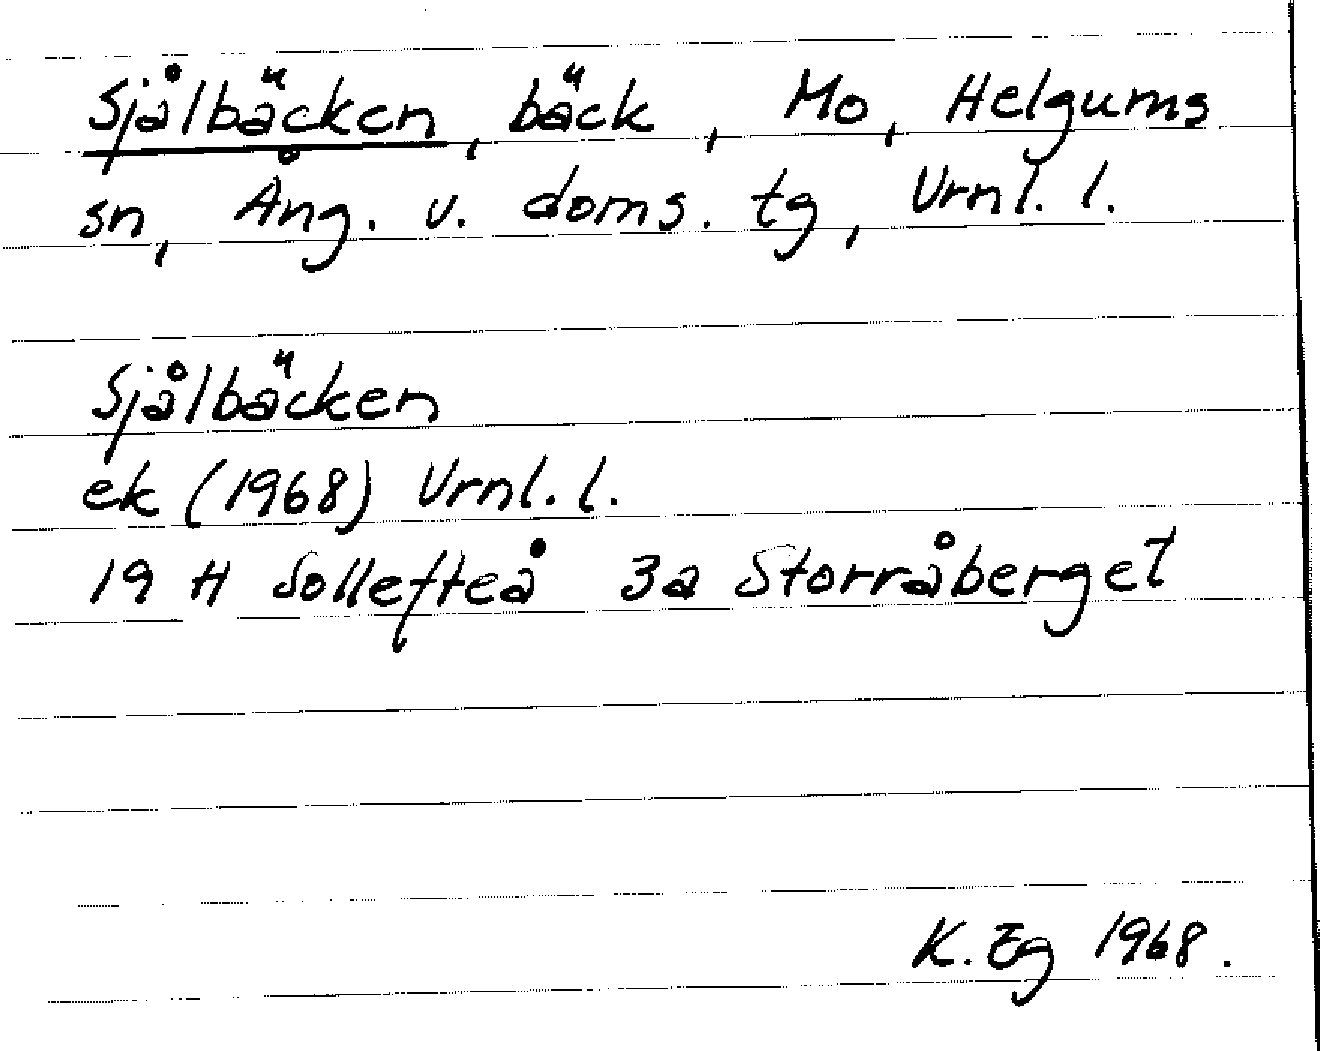 Sjålbäcken, bäck, Mo, Helgums
sn, Ång. v. doms. tg, Urnl. l.
Sjålbäcken
ek (1968) Urnl. l.
19 H Sollefteå 3a Storråberget
K. Eg 1968.